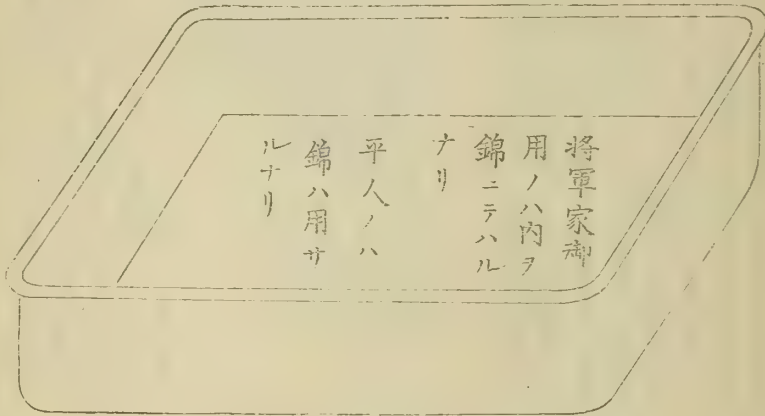 将軍家御
用ノハ内ヲ
錦ニテハル
ナリ
平人ノハ
錦ハ用サ
ルナリ